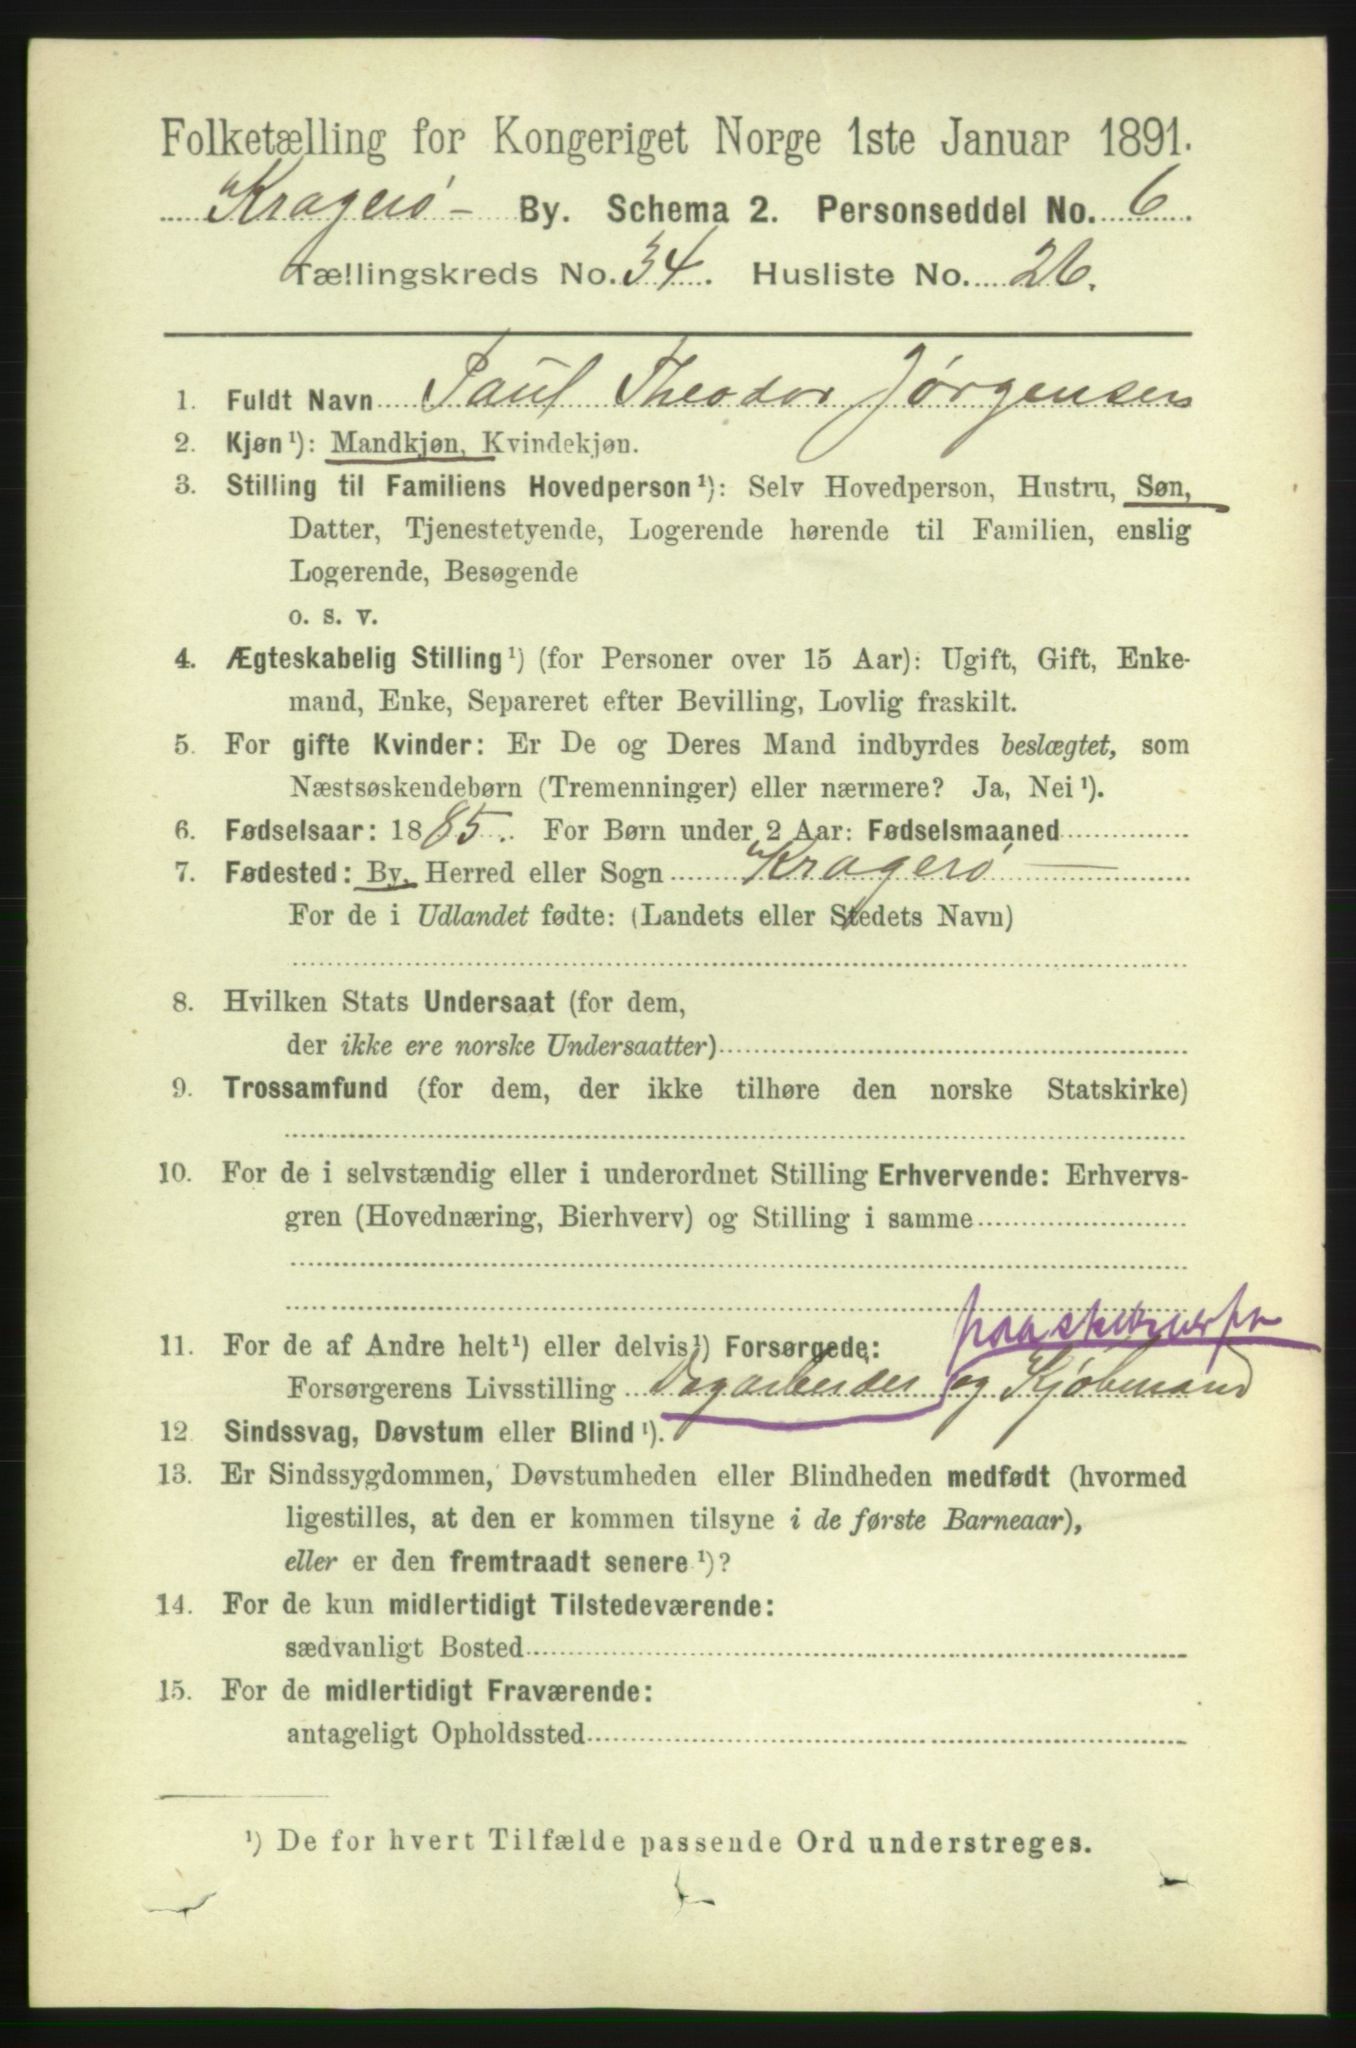 Folketælling for Kongeriget Norge 1ste Januar 1891.
Kragerø - By. Schema 2. Personseddel No. 6.
Tællingskreds No. 34. Husliste No. 26.
1. Fuldt Navn Paul Theodor Jørgensen
2. Kjøn¹): Mandkjøn, Kvindekjøn.
3. Stilling til Familiens Hovedperson¹): Selv Hovedperson, Hustru, Søn,
Datter, Tjenestetyende, Logerende hørende til Familien, enslig
Logerende, Besøgende
o. s. v.
4. Ægteskabelig Stilling¹) (for Personer over 15 Aar): Ugift, Gift, Enke-
mand, Enke, Separeret efter Bevilling, Lovlig fraskilt.
5. For gifte Kvinder: Er De og Deres Mand indbyrdes beslægtet, som
Næstsøskendebørn (Tremenninger) eller nærmere? Ja, Nei¹).
6. Fødselsaar: 1885. For Børn under 2 Aar: Fødselsmaaned
7. Fødested: By, Herred eller Sogn Kragerø
For de i Udlandet fødte: (Landets eller Stedets Navn)
8. Hvilken Stats Undersaat (for dem,
der ikke ere norske Undersaatter)
9. Trossamfund (for dem, der ikke tilhøre den norske Statskirke)
10. For de i selvstændig eller i underordnet Stilling Erhvervende: Erhvervs-
gren (Hovednæring, Bierhverv) og Stilling i samme
11. For de af Andre helt¹) eller delvis¹) Forsørgede:
Forsørgerens Livsstilling Dagarbeider og Kjøbmand
12. Sindssvag, Døvstum eller Blind¹).
13. Er Sindssygdommen, Døvstumheden eller Blindheden medfødt (hvormed
ligestilles, at den er kommen tilsyne i de første Barneaar),
eller er den fremtraadt senere¹)?
14. For de kun midlertidigt Tilstedeværende:
sædvanligt Bosted
15. For de midlertidigt Fraværende:
antageligt Opholdssted
¹) De for hvert Tilfælde passende Ord understreges.